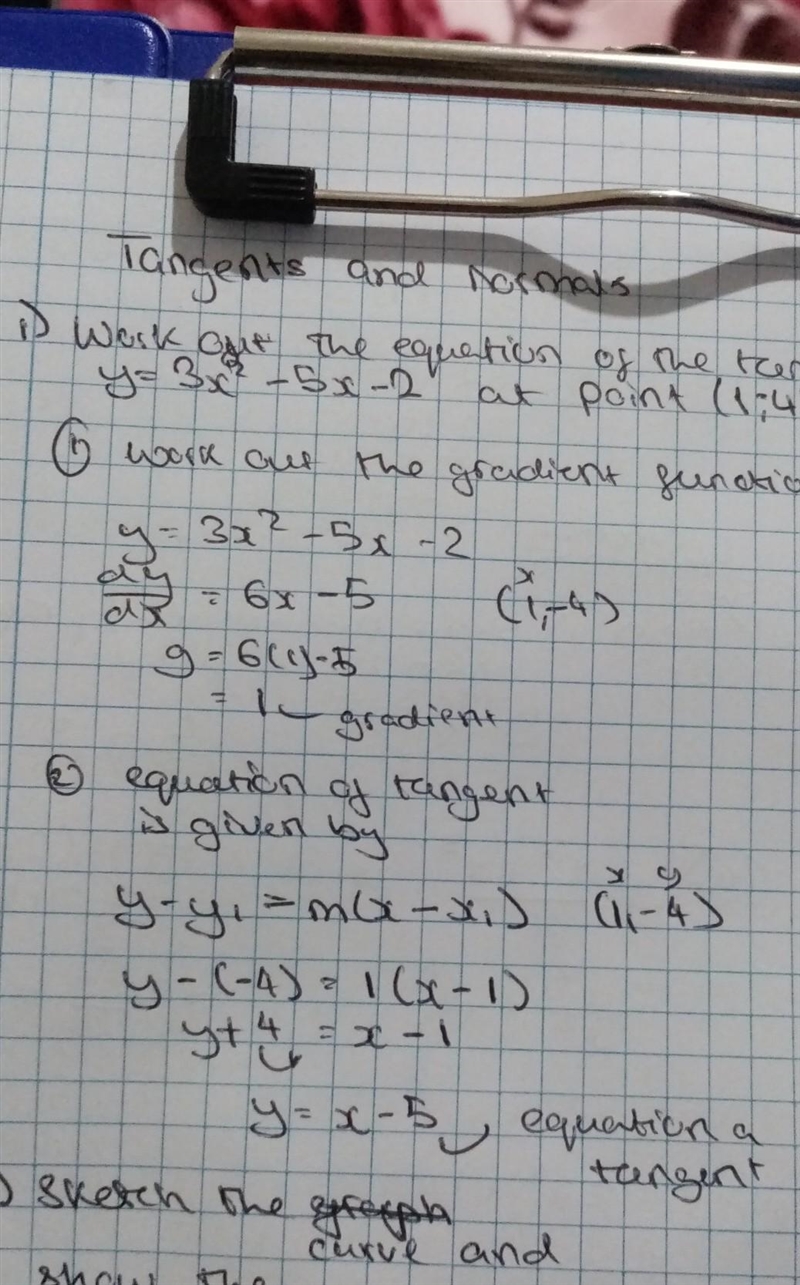 Tangents and Normals
1) Work out the equation of the
y = 3x² - 5x - 2 at point (1;4
① work out the gradient
y = 3x² - 5x - 2
dy/dx = 6x - 5 (1,-4) x
g = 6(1)-5
= 1 gradient
② equation of tangent
is given by
x y
y - y₁ = m(x - x₁) (1,-4)
y - (-4) = 1(x - 1)
y + 4 = x - 1
y = x - 5 equation a
tangent
) Sketch the graph
curve and
show the